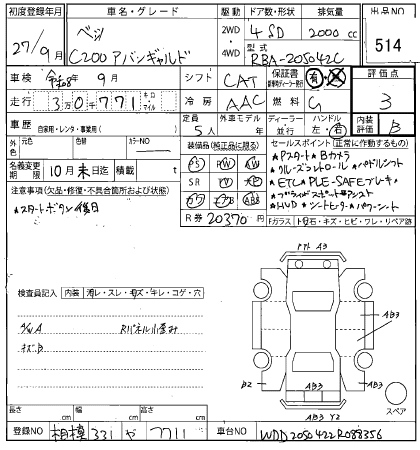 初度登録年月 車名・グレード 駆動 ドア数・形状 排気量 出品NO
27/9月 ベンツ 2WD・4WD 4 SD 2000 cc 514
C200 アバンギャルド 型式 RBA-205042C
車検 令和8年 9月 シフト CAT 保証書 有・ 評価点
走行 3万0千771 キロ マイル 冷房 AAC 燃料 G 3
車歴 自家用・レンタ・事業用( ) 定員 5人 外車モデル 年 ディーラー 並行 ハンドル 左・右 内装評価 B
外色 元色 色替 カラーNO 装備品(純正品に限る) セールスポイント(正常に作動するもの)
名義変更期限 10月末日迄 積載 t PS PW SR TV AB
★Pスタート ★Bカメラ
★クルーズコントロール ★パドルシフト
★ETC ★PRE-SAFEブレーキ
★ブラインドスポットアシスト
★HUD ★シートヒーター ★パワーシート
注意事項(欠品・修復・不具合箇所および状態)
★スタートボタン後日
R券 20370円 Fガラス ト石・キズ・ヒビ・ワレ・リペア跡
検査員記入 内装 ヨゴレ・スレ・キズ・キレ・コゲ・穴
ダメA Rパネル小歪み
キズB
A3
AB3
B2 AB3 AB3
AB3 Y2 スペア
長さ cm 幅 cm 高さ cm
登録NO 相模 331 や 7711 車台NO WDD2050422R088356